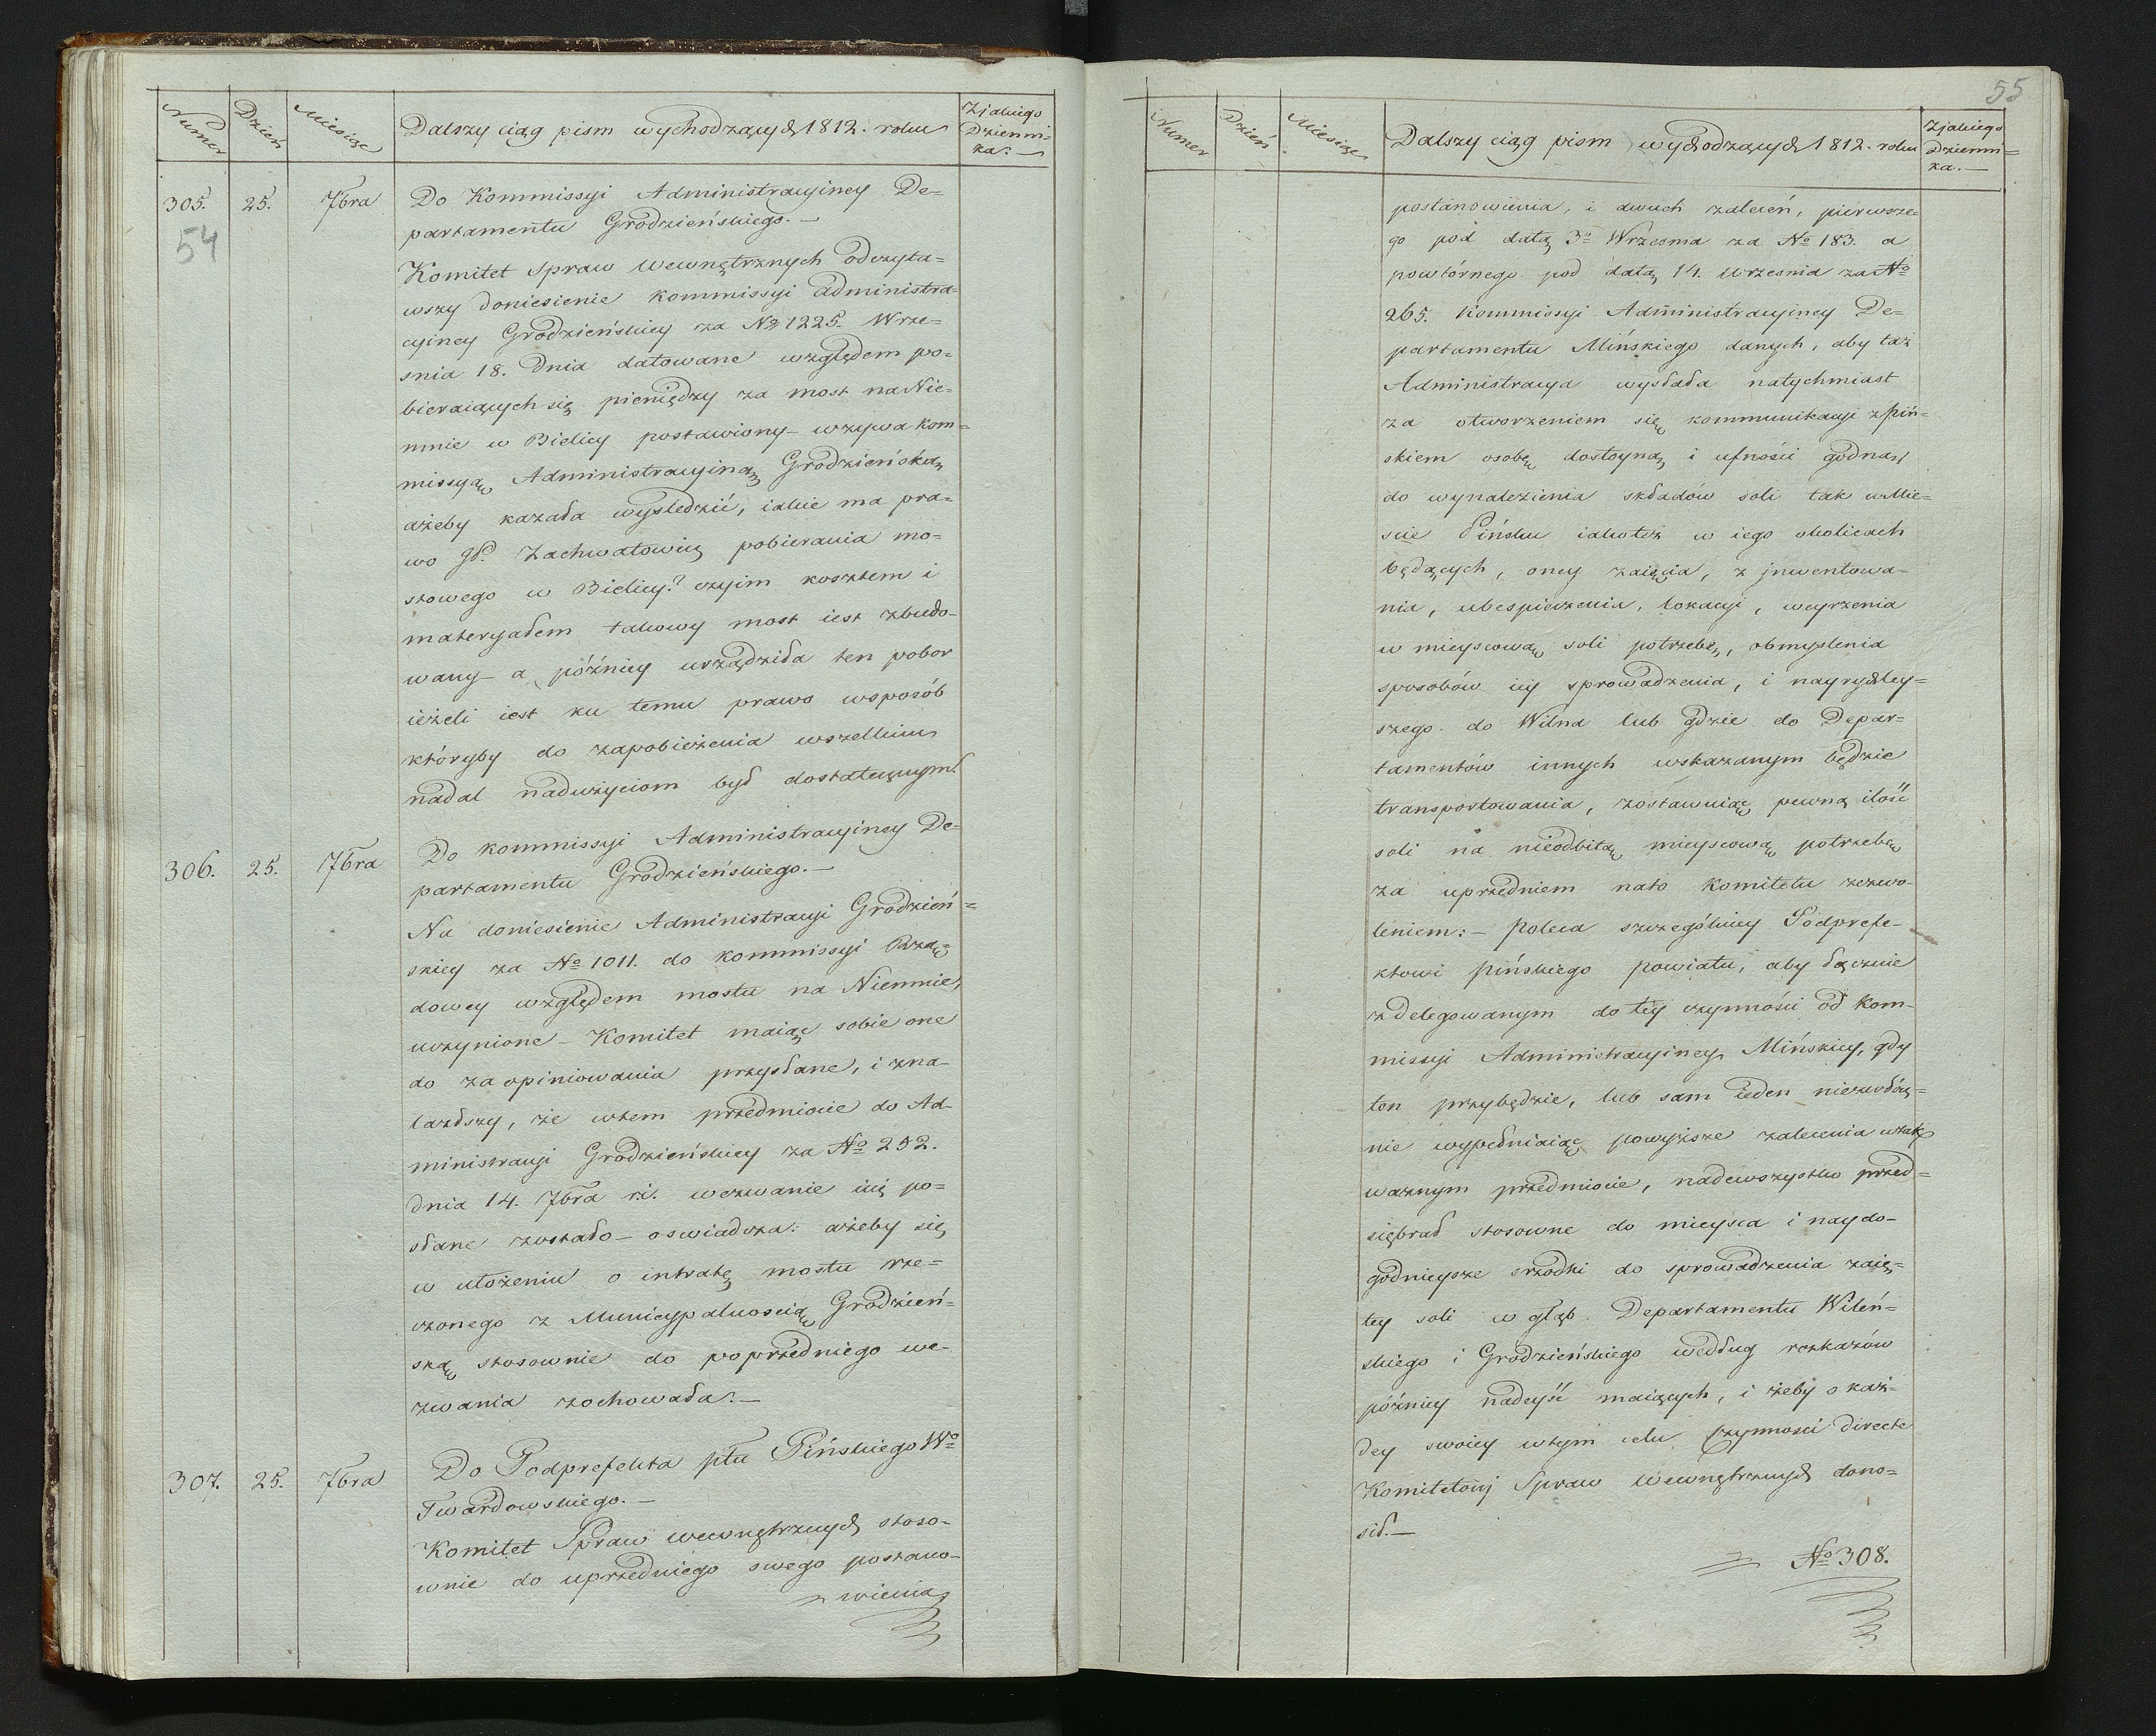 Numer Dzień Miesiąc Dalszy ciąg pism wychodzących 1812. roku Zjakiego Dzienni=
ka.—
305. 25. 7bra Do Kommissyi Administracyiney De=
54
partamentu Grodzieńskiego.—
Komitet Spraw Wewnętrznych odczyta=
wszy doniesienie Kommissyi Administra=
cyiney Grodzieńskiey za No 1225. Wrze=
snia 18. Dnia datowane względem po=
bieraiących się pieniędzy za most na Nie=
mnie w Bielicy postawiony – wzywa Kom=
missyą Administracyiną Grodzieńską
ażeby kazała wysledzić, iakie ma pra=
wo JP. Zachwatowicz pobierania mo=
stowego w Bielicy? czyim kosztem i
materyałem takowy most iest zbudo=
wany – a późniey urządziła ten pobor
ieżeli iest ku temu prawo wsposób
któryby do zapobieżenia wszelkim
nadal nadużyciom był dostatecznym.
306. 25. 7bra Do Kommissyi Administracyiney De=
partamentu Grodzieńskiego.—
Na doniesienie Administracyi Grodzień=
skiey za No 1011. do Kommissyi Rzą=
dowey względem mostu na Niemnie,
uczynione – Komitet maiąc sobie one
do zaopiniowania przysłane, i zna=
lazłszy, że wtem przedmiocie do Ad=
ministracyi Grodzieńskiey za No 252.
dnia 14. 7bra r.i. wezwanie iuż po=
słane zostało – oswiadcza: ażeby się
w ułożeniu o intratę mostu rze=
czonego z Municypalnoscią Grodzień=
ską stosownie do poprzedniego we=
zwania zachowała.—
307. 25. 7bra Do Podprefekta ptu Pińskiego Wo
Twardowskiego.—
Komitet Spraw wewnętrznych stoso=
wnie do uprzedniego swego postano=
wienia
55
Numer Dzień Miesiąc Dalszy ciąg pism wychodzących 1812. roku Zjakiego Dzienni=
ka.—
postanowienia, i dwuch zaleceń, pierwsze=
go pod datą 3o Wrzesnia za No 183. a
powtórnego pod datą 14. wrzesnia za No
265. Kommissyi Administracyiney De=
partamentu Mińskiego danych, aby taż
Administracya wysłała natychmiast
za otworzeniem się kommunikacyi z Piń=
skiem osobę dostoyną i ufności godną
do wynalezienia składów soli tak w Mie=
scie Pińsku iakoteż w iego okolicach
będących, oney zaięcia, z jnwentowa=
nia, ubespieczenia, lokacyi, weyrzenia
w mieyscową soli potrzebę, obmyslenia
sposobów iey sprowadzenia, i nayrychley=
szego do Wilna lub gdzie do Depar=
tamentów innych wskazanym będzie
transportowania, zostawuiąc pewną ilość
soli na nieodbitą mieyscową potrzebę
za uprzedniem nato Komitetu zezwo=
leniem: – poleca szczególniey Podprefe=
ktowi Pińskiego powiatu, aby łącznie
z delegowanym do tey czynności od Kom=
missyi Administracyiney Mińskiey, gdy
ten przybędzie, lub sam ieden niezwłócz=
nie wypełniaiąc powyższe zalecenia wtak
ważnym przedmiocie, nadewszystko przed=
siębrał stosowne do mieysca i naydo=
godnieysze srzodki do sprowadzenia zaię=
tey soli w głąb Departamentu Wileń=
skiego i Grodzieńskiego według rozkazów
późniey nadeyść maiących, i żeby o każ=
dey swoiey wtym celu czynności directe
Komitetowi Spraw Wewnętrznych dono=
sił.—
No 308.